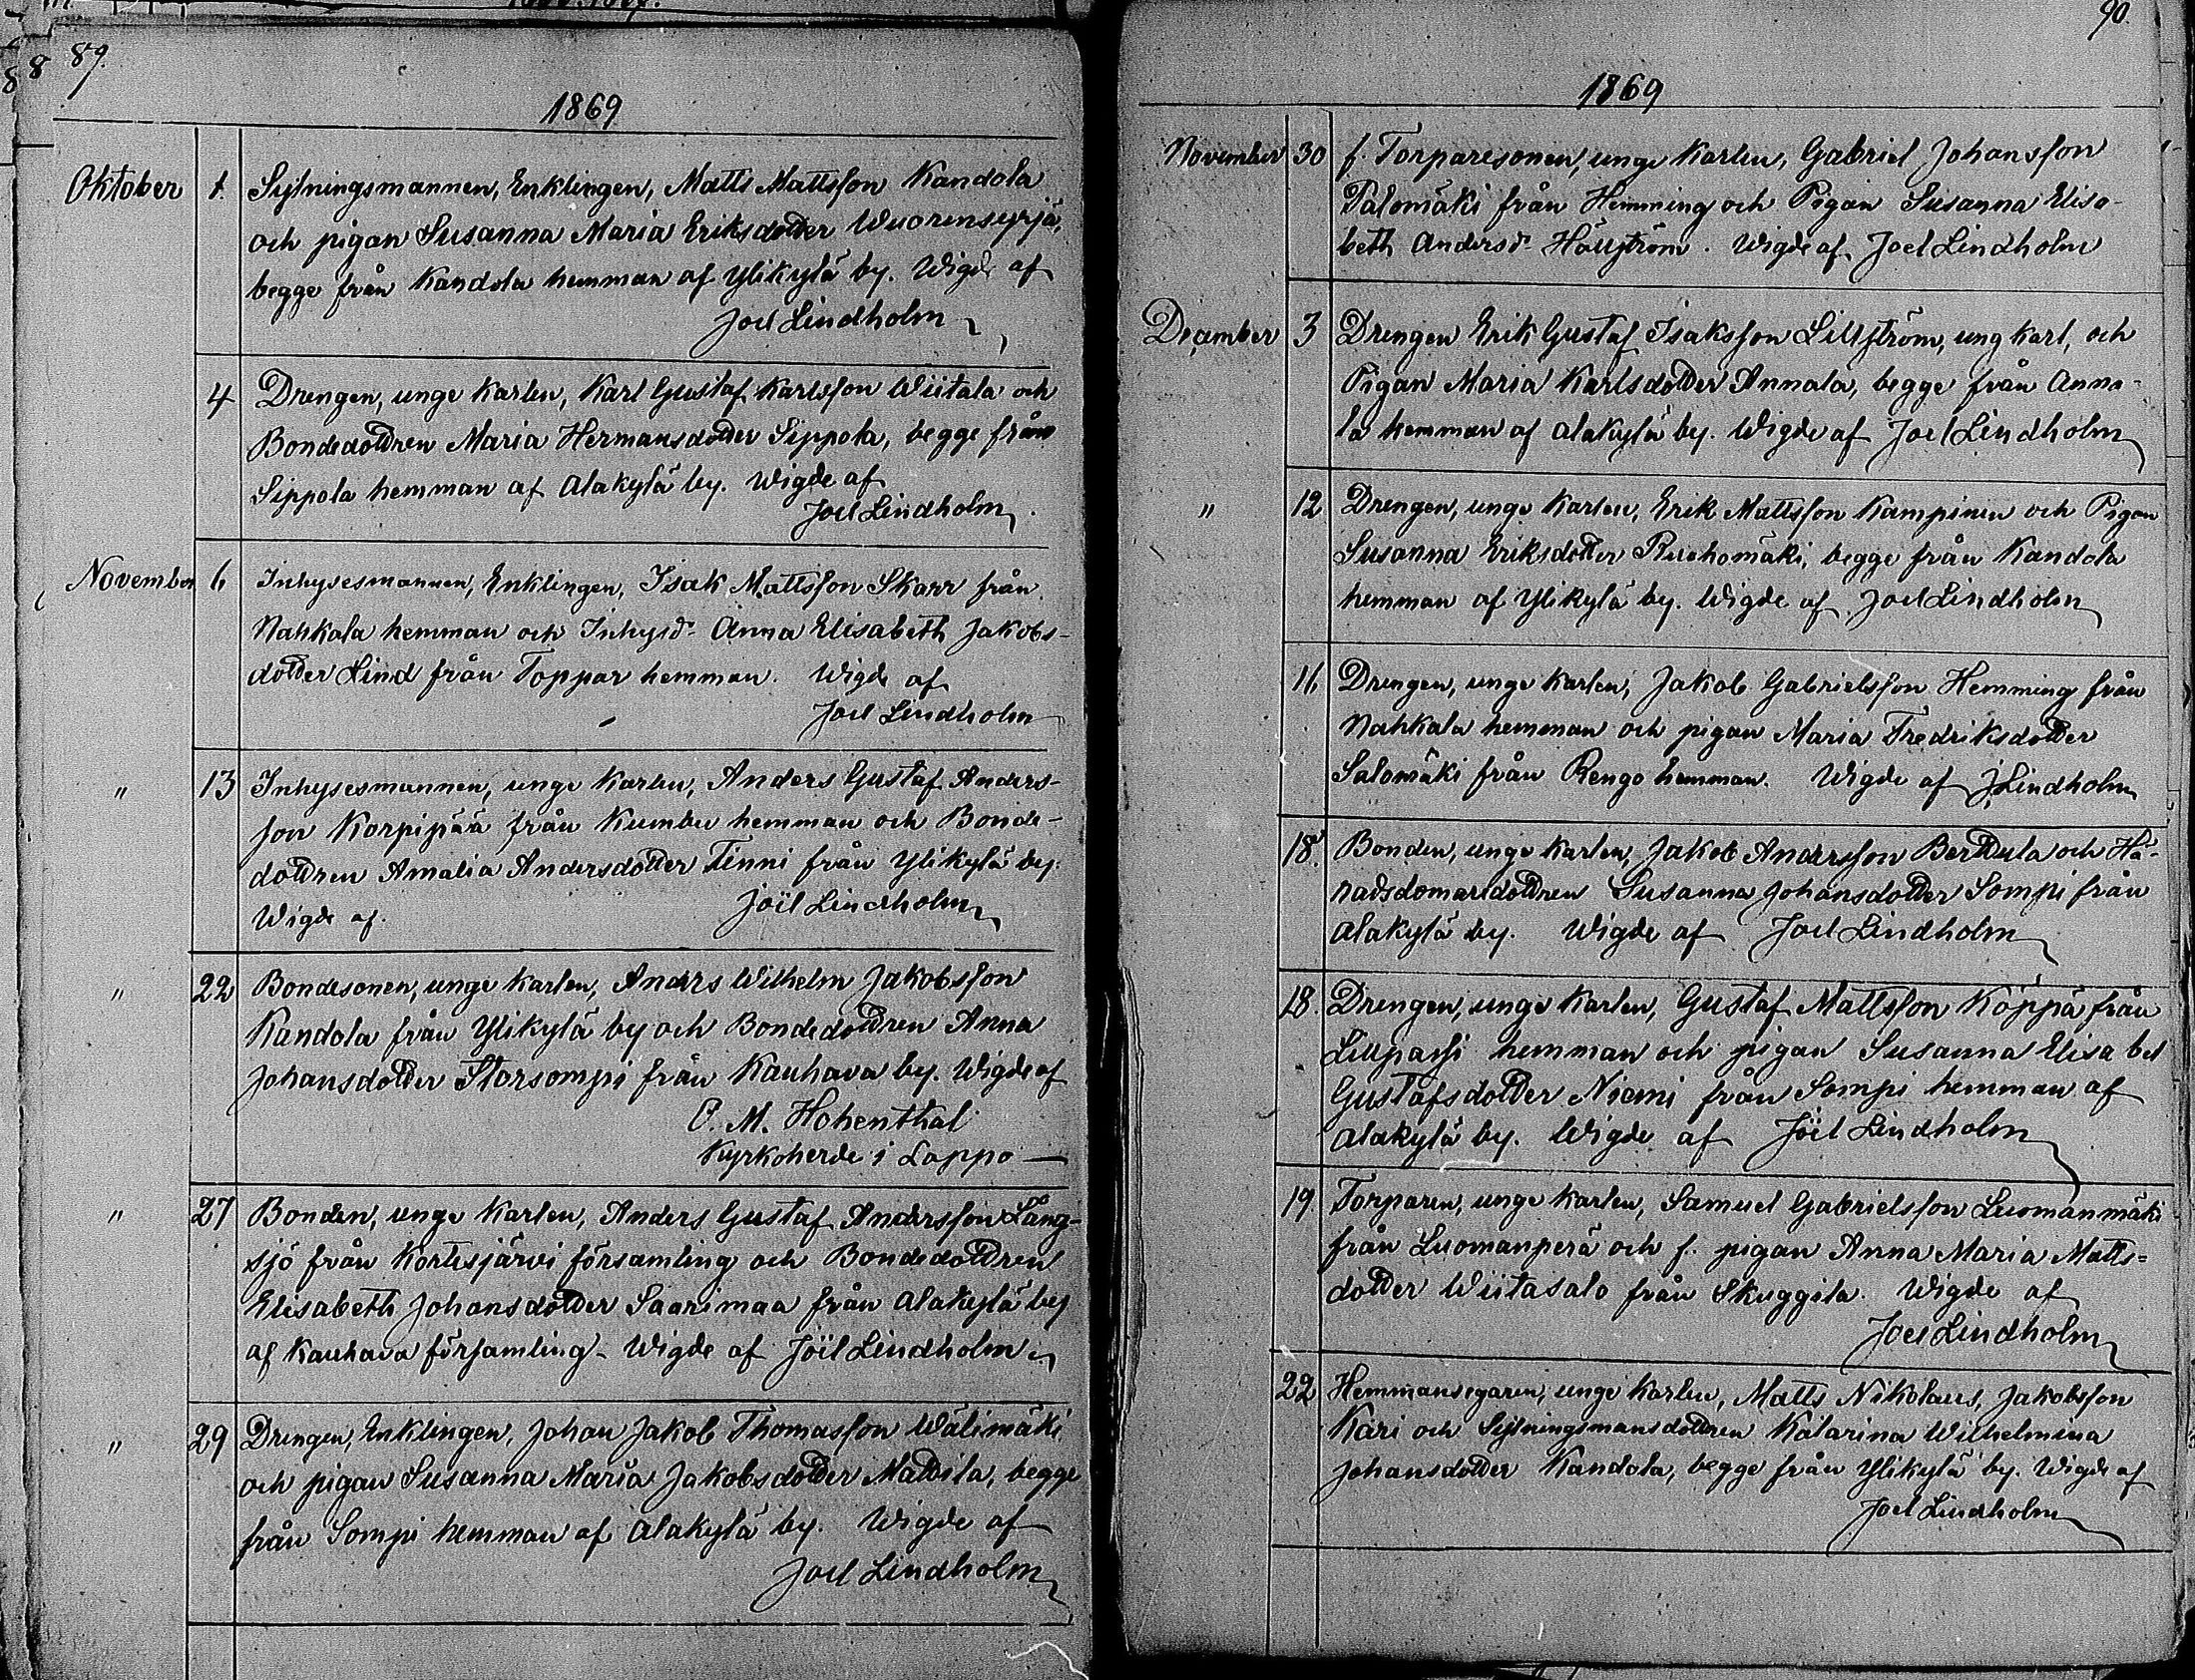 89.
1869
Oktober 1. Sysningsmannen, Enklingen, Matts Mattsson Kandola
och pigan Susanna Maria Eriksdotter Wuorensyrjä,
begge från Kandola hemman af Ylikylä by. Wigde af
Joel Lindholm
4 Drengen, unge karlen, Karl Gustaf Karlsson Wiitala och
Bondedottren Maria Hermansdotter Sippola, begge från
Sippola hemman af Alakylä by. Wigde af
Joel Lindholm
November 6 Inhysesmannen, Enklingen, Isak Mattsson Skarr från
Nahkala hemman och Inhysd. Anna Elisabeth Jakobs-
dotter Lind från Toppar hemman. Wigde af
Joel Lindholm
" 13 Inhysesmannen, unge karlen, Anders Gustaf Anders-
son Korpipää från hemman och Bonde-
dottren Amalia Andersdotter Tinni från Ylikylä by.
Wigde af. Joël Lindholm
" 22 Bondesonen, unge karlen, Anders Wilhelm Jakobsson
Kandola från Ylikylä by och Bondedottren Anna
Johansdotter Storsompi från Kauhava by. Wigde af
O. M. Hohenthal
Kyrkoherde i Lappo —
" 27 Bonden, unge karlen, Anders Gustaf Andersson Lång-
sjö från Kortesjärvi församling och Bondedottren
Elisabeth Johansdotter Saarimaa från Alakylä by
af Kauhava församling - Wigde af Joël Lindholm
" 29 Drengen, Enklingen, Johan Jakob Thomasson Wälimäki
och pigan Susanna Maria Jakobsdotter Mattila, begge
från Sompi hemman af Alakylä by. Wigde af
Joel Lindholm
90.
1869
November 30 f. Torparesonen, unge karlen, Gabriel Johansson
Palomäki från Hemming och Pigan Susanna Elisa-
beth Andersdr Hällström. Wigde af Joel Lindholm
December 3 Drengen Erik Gustaf Isaksson Lillström, ung karl, och
Pigan Maria Karlsdotter Annala, begge från Anna-
la hemman af Alakylä by. Wigde af Joel Lindholm
" 12 Drengen, unge karlen, Erik Mattsson Kampinen och Pigan
Susanna Eriksdotter Ruohomäki, begge från Kandola
hemman af Ylikylä by. Wigde af Joel Lindholm
16 Drengen, unge karlen, Jakob Gabrielsson Hemming från
Nahkala hemman och pigan Maria Fredriksdotter
Salomäki från Rengo hemman. Wigde af J. Lindholm
18. Bonden, unge karlen, Jakob Andersson Berttula och Hä-
radsdomaredottren Susanna Johansdotter Sompi från
Alakylä by. Wigde af Joel Lindholm
18. Drengen, unge karlen, Gustaf Mattsson Köppä från
Lillpassi hemman och pigan Susanna Elisabet
Gustafsdotter Niemi från Sompi hemman af
Alakylä by. Wigde af Joël Lindholm
19. Torparen, unge karlen, Samuel Gabrielsson Luomanmäki
från Luomanperä och f. pigan Anna Maria Matts=
dotter Wiitasalo från Skuggila. Wigde af
Joel Lindholm
22 Hemmansegaren, unge karlen, Matts Nikolaus, Jakobsson
Kari och Sysningsmansdottren Katarina Wilhelmina
Johansdotter Kandola, begge från Ylikylä by. Wigde af
Joel Lindholm